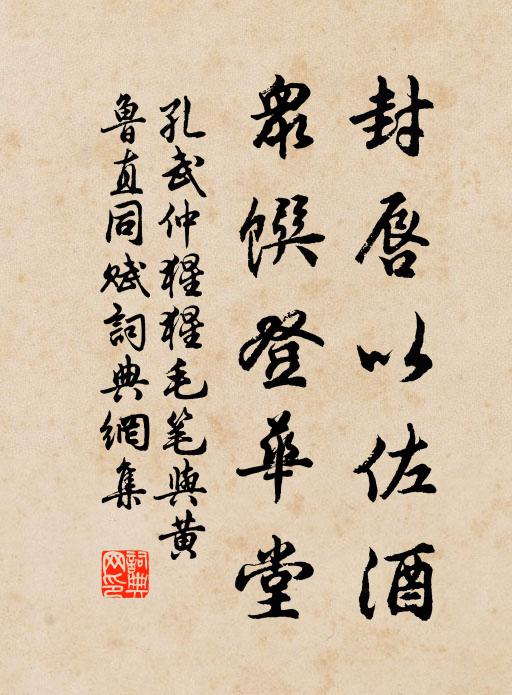 封唇以佐酒
衆馔登華堂
孔武仲猩猩毛笔與黄
魯直同赋詞典網集
詞典网印